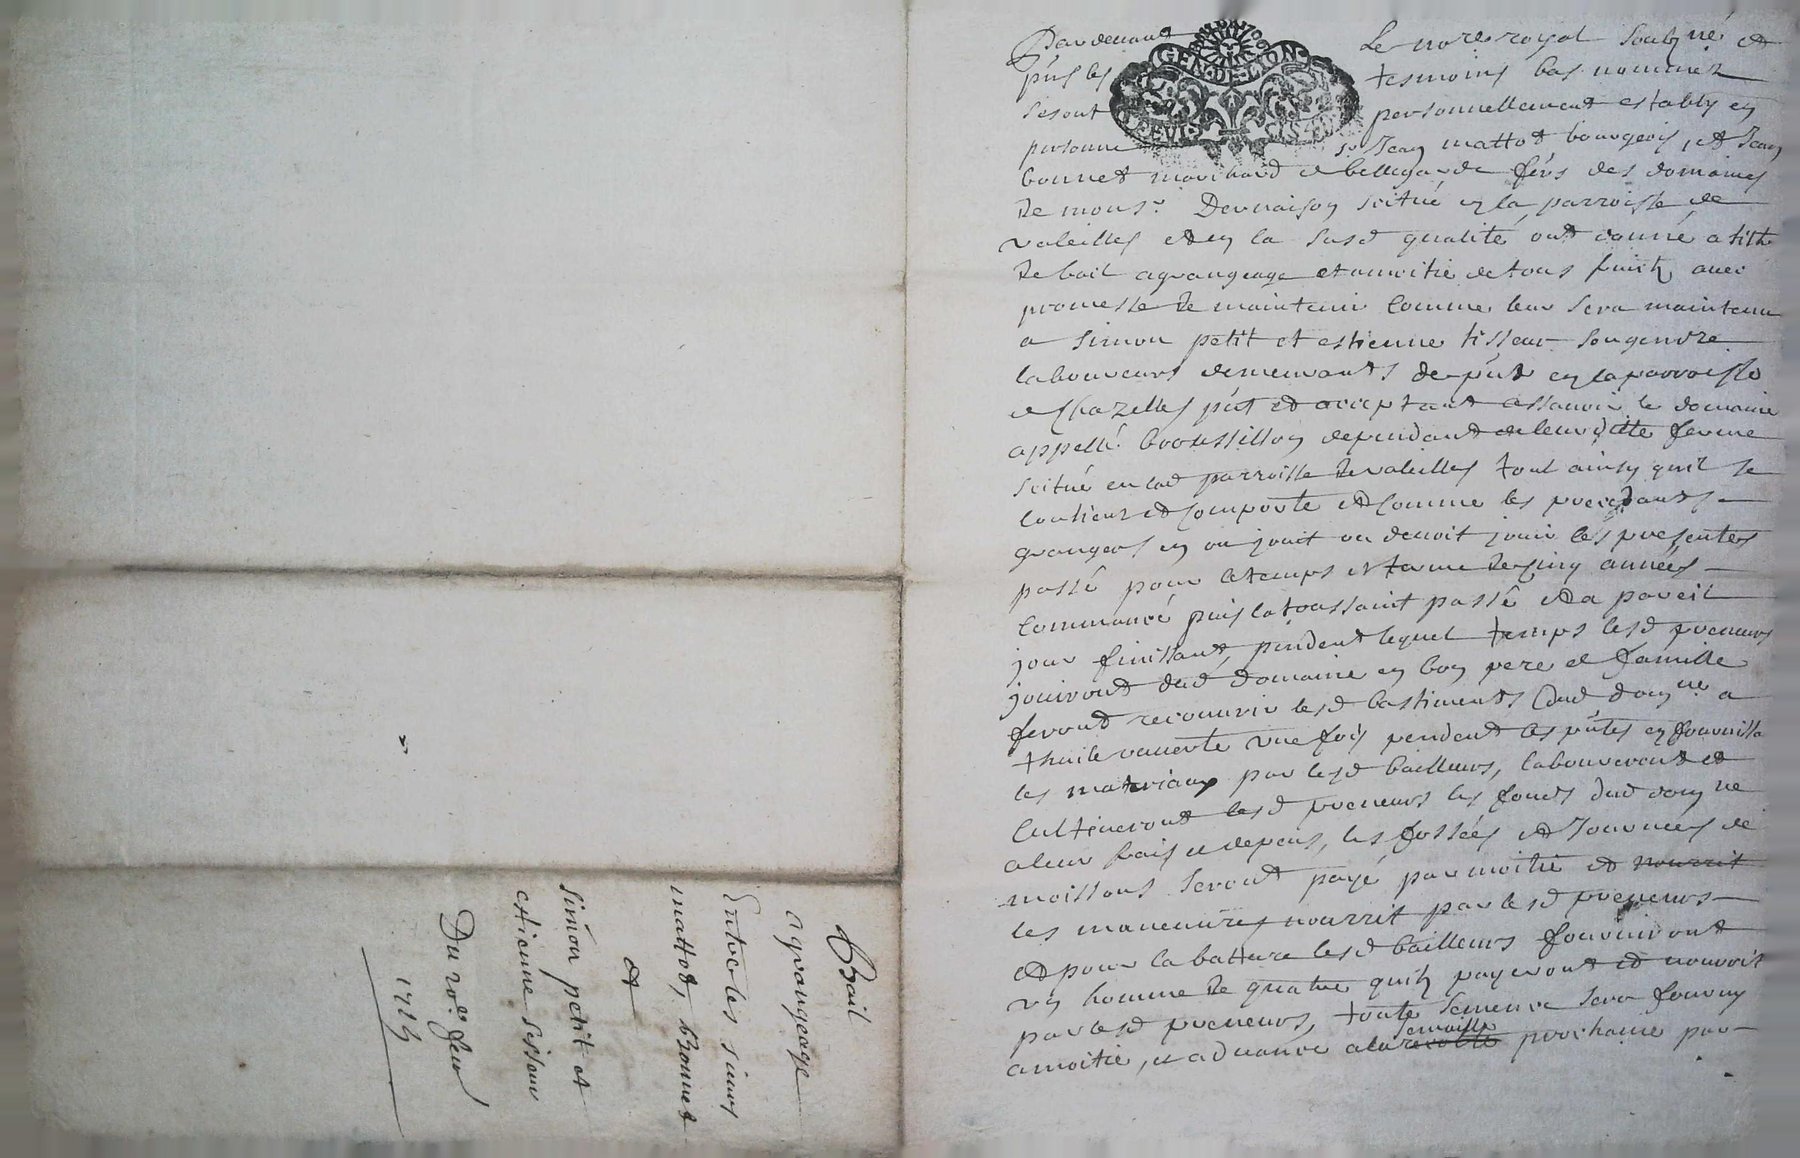 Bail
a grangeage
Entre les sieurs
mattot, Bonnet
et
Simon petit et
estienne tisseur
Du 20e feu
GEN·DE·LION
Pardevant Le nore royal soubzné et
pnt les tesmoins bas nommez
se sont personnellement estably en
personne sr Jean mattot bourgeois, et Jean
bonnet marchand de bellegarde fers des domaines
de monsr Dernaison scitué en la parroisse de
valeilles et en la susd qualité ont donné a tiltre
de bail a grangeage et a moitié de tous fruitz avec
promesse de maintenir comme leur sera maintenu
a simon petit et estienne tisseur son gendre
laboureurs demeurants de pnt en la parroisse
de Chazelles pnt et acceptant assavoir le domaine
appellé broussillon dependant de leur ditte ferme
scitué en lad parroisse de valeilles tout ainsy quil se
contient et comporte et comme les precedants
grangers en on jouit ou devoit jouir les presentes
passé pour le temps et terme de cinq années
commancé puis la toussaint passé et a pareil
jour finissant, pendent lequel temps lesd preneurs
jouiront dud domaine en bon pere de famille
feront recouvrir lesd bastiments dud domne a
thuile ravente une fois pendent les pntes en fournissa
les materiaux par lesd bailleurs, laboureront et
cultiveront lesd preneurs les fonds dud domne
a leur frais et depens, les fossées et journées de
moissons seront payé par moitié et nourrit
les maneuvres nourrit par lesd preneurs
et pour la batture lesd bailleurs fourniront
un homme de quatre quilz payeront et nourrit
par lesd preneurs, toute semence sera fourny
a moitié, et advancé a la recolte semaille prochaine par